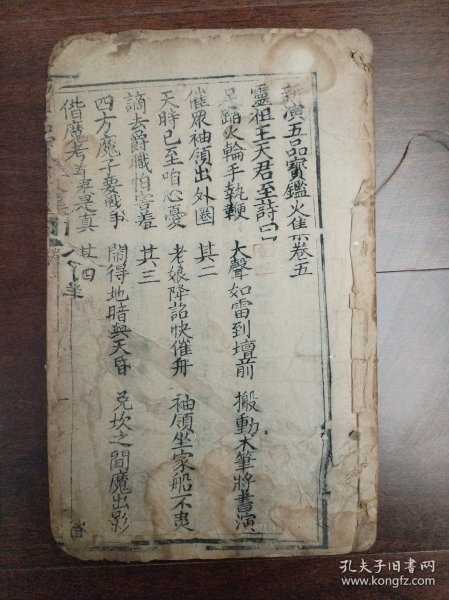 新演五品寳鑑火集卷五
靈祖王天君至詩曰
足踏火輪手執鞭　大聲如雷到壇前　搬動木筆將書演
催眾袖領出外圈　其二
天時已至咱心憂　老娘降詔快催舟　袖領坐家船不爽
謫去爵職怕害羞　其三
四方魔子要戰爭　鬧得地暗與天昏　兌坎之間魔出影
借魔考道果真　其四
孔夫子旧书网
www.kongfz.com